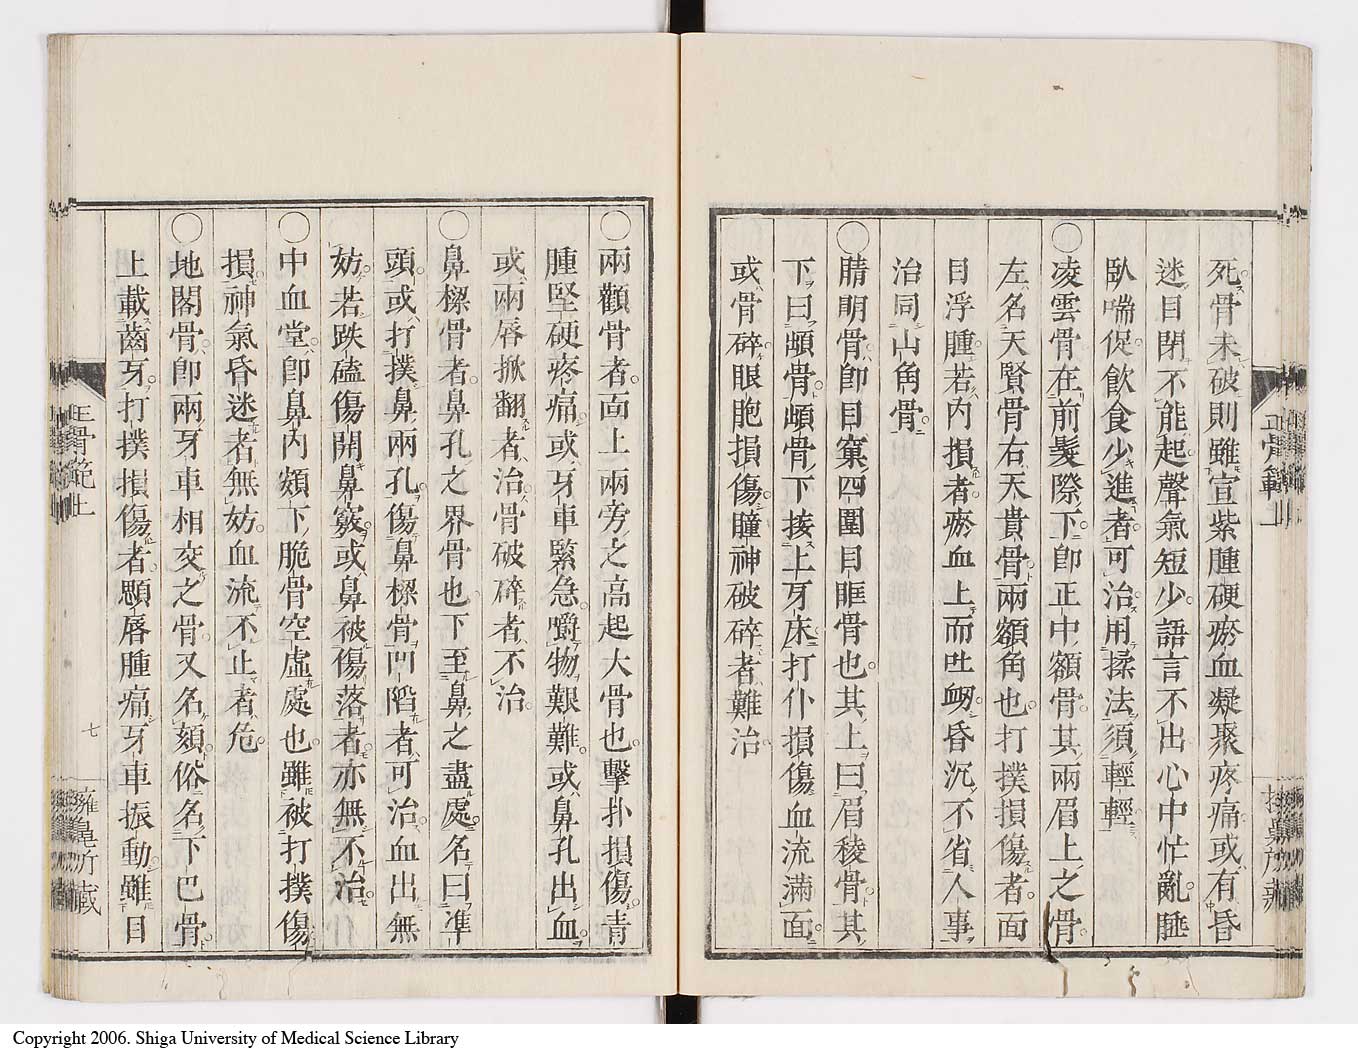 死骨未破則雖宣紫腫硬瘀血凝聚疼痛或有昏
迷目閉不能起聲氣短少語言不出心中忙亂睡
臥喘促飲食少進者可治用揉法須輕輕
○凌雲骨在前髮際下卽正中額骨其兩眉上之骨
左名天賢骨右天貴骨兩額角也打撲損傷者面
目浮腫若內損者瘀血上而吐衂昏沉不省人事
治同山角骨
○睛明骨卽目窠四圍目眶骨也其上曰眉稜骨其
下曰䪼骨䪼骨下接上牙床打仆損傷血流滿面
或骨碎眼胞損傷瞳神破碎者難治
正骨範上
○兩顴骨者面上兩旁之高起大骨也擊扑損傷青
腫堅硬疼痛或牙車緊急嚼物艱難或鼻孔出血
或兩唇掀翻者治骨破碎者不治
○鼻樑骨者鼻孔之界骨也下至鼻之盡處名曰準
頭或打撲鼻兩孔傷鼻樑骨凹陷者可治血出無
妨若跌磕傷開鼻竅或鼻被傷落者亦無不治
○中血堂卽鼻內頞下脆骨空虛處也雖被打撲傷
損神氣昏迷者無妨血流不止者危
○地閣骨卽兩牙車相交之骨又名頦俗名下巴骨
上載齒牙打撲損傷者顋唇腫痛牙車振動雖目
正骨範上
七
Copyright 2006. Shiga University of Medical Science Library